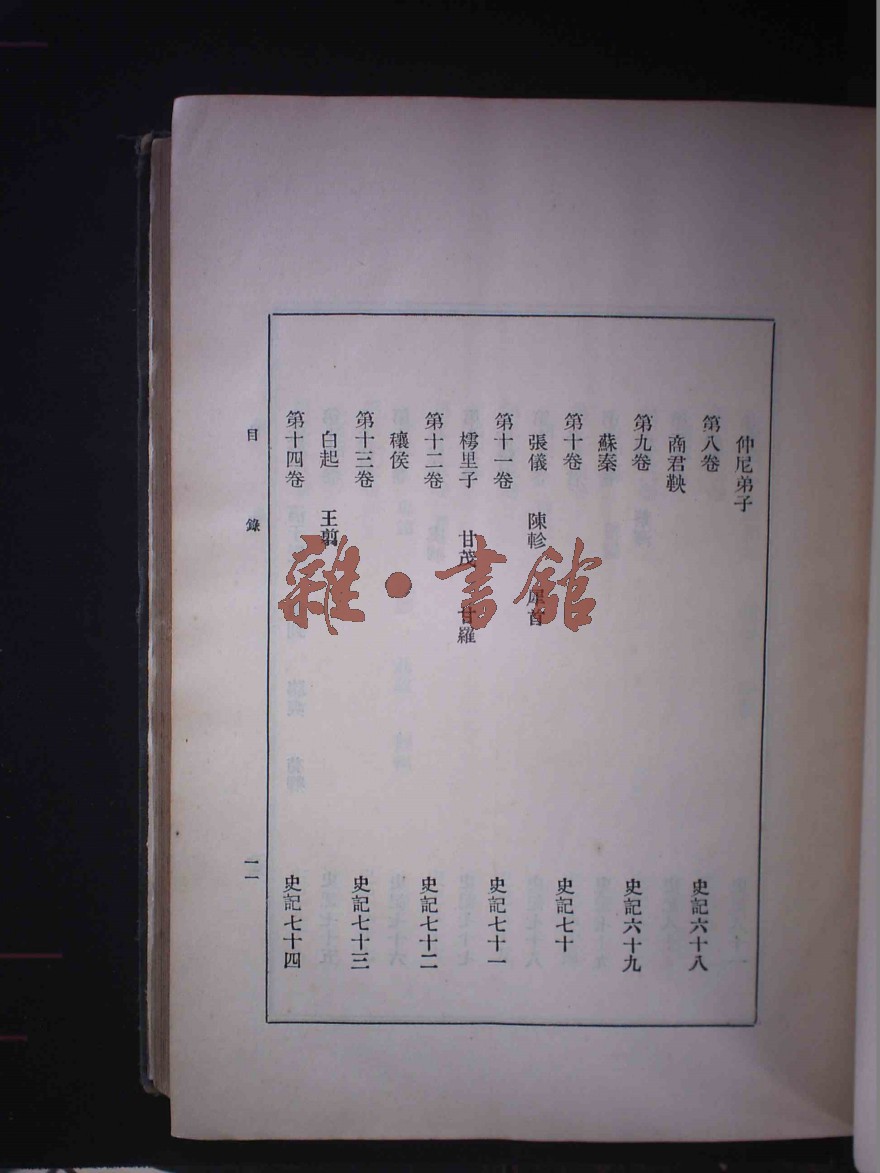 仲尼弟子
第八卷 史記六十八
商君鞅
第九卷 史記六十九
蘇秦
第十卷 史記七十
張儀 陳軫 犀首
第十一卷 史記七十一
樗里子 甘茂 甘羅
第十二卷 史記七十二
穰侯
第十三卷 史記七十三
白起 王翦
第十四卷 史記七十四
目錄 一一
雜·書館